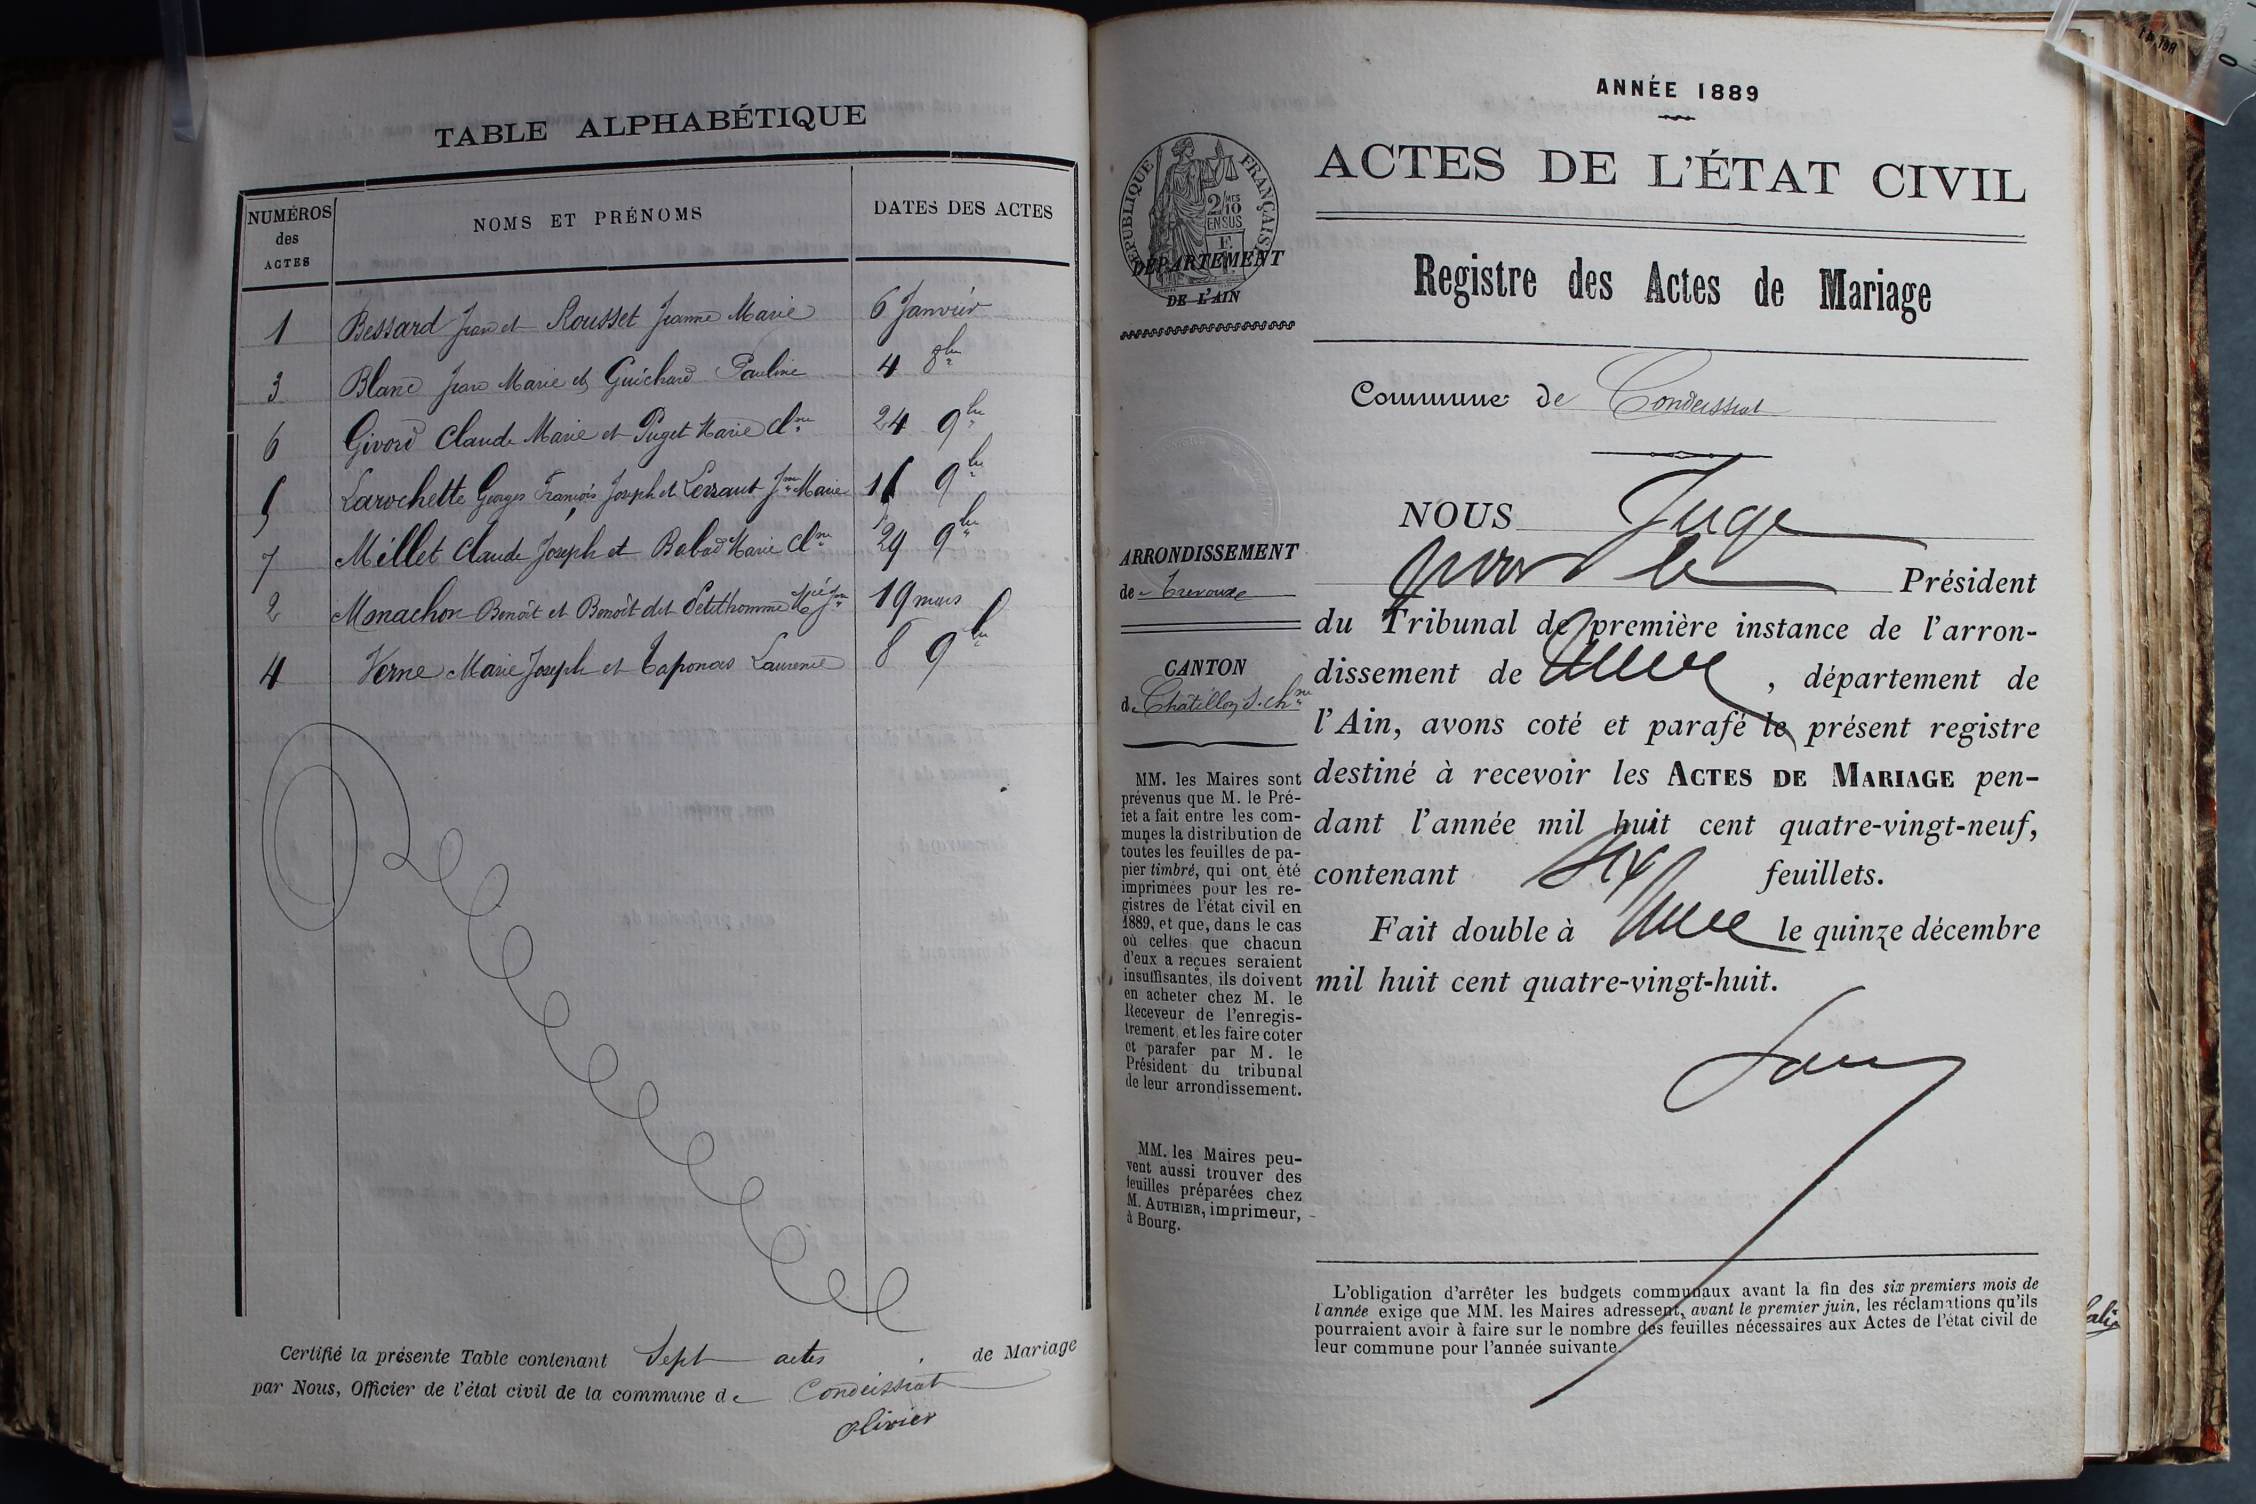 TABLE ALPHABÉTIQUE
NUMÉROS des ACTES | NOMS ET PRÉNOMS | DATES DES ACTES
1 Bessard Jean et Rousset Jeanne Marie 6 Janvier
3 Blanc Jean Marie et Guichard Pauline 4 8bre
6 Givord Claude Marie et Puget Marie Cl.ne 24 9bre
5 Larochette Georges François Joseph et Jne Marie 9bre
7 Millet Claude Joseph et Babad Marie Cl.ne 29 9bre
2 Monachon Benoît et Benoît dit Petithomme 19 mars
4 Verne Marie Joseph et Taponas Laurence 8 9bre
Certifié la présente Table contenant Sept actes de Mariage
par Nous, Officier de l'état civil de la commune de Condeissiat
Olivier
ANNÉE 1889
ACTES DE L'ÉTAT CIVIL
RÉPUBLIQUE FRANÇAISE
2/10MES
EN SUS
DÉPARTEMENT
DE L'AIN
Registre des Actes de Mariage
Commune de Condeissiat
NOUS Juge
pour le Président
du Tribunal de première instance de l'arron-
dissement de , département de
l'Ain, avons coté et parafé le présent registre
destiné à recevoir les ACTES DE MARIAGE pen-
dant l'année mil huit cent quatre-vingt-neuf,
contenant six feuillets.
Fait double à le quinze décembre
mil huit cent quatre-vingt-huit.
ARRONDISSEMENT
de Trévoux
CANTON
de Châtillon s. Ch.ne
MM. les Maires sont
prévenus que M. le Pré-
fet a fait entre les com-
munes la distribution de
toutes les feuilles de pa-
pier timbré, qui ont été
imprimées pour les re-
gistres de l'état civil en
1889, et que, dans le cas
où celles que chacun
d'eux a reçues seraient
insuffisantes, ils doivent
en acheter chez M. le
Receveur de l'enregis-
trement, et les faire coter
et parafer par M. le
Président du tribunal
de leur arrondissement.
MM. les Maires peu-
vent aussi trouver des
feuilles préparées chez
M. AUTHIER, imprimeur,
à Bourg.
L'obligation d'arrêter les budgets communaux avant la fin des six premiers mois de
l'année exige que MM. les Maires adressent, avant le premier juin, les réclamations qu'ils
pourraient avoir à faire sur le nombre des feuilles nécessaires aux Actes de l'état civil de
leur commune pour l'année suivante.